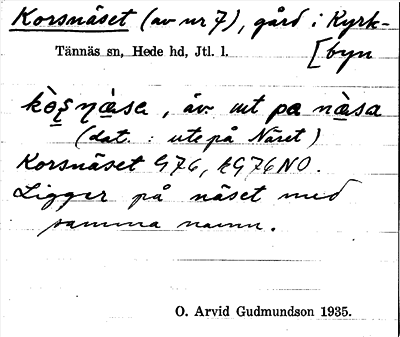 Korsnäset (av nr 7), gård i Kyrk-
[byn
Tännäs sn, Hede hd, Jtl. l.
, äv. ut pa nàsa
(dat. : ute på Näset)
Korsnäset G76, kG76NO.
Ligger på näset med
samma namn.
O. Arvid Gudmundson 1935.